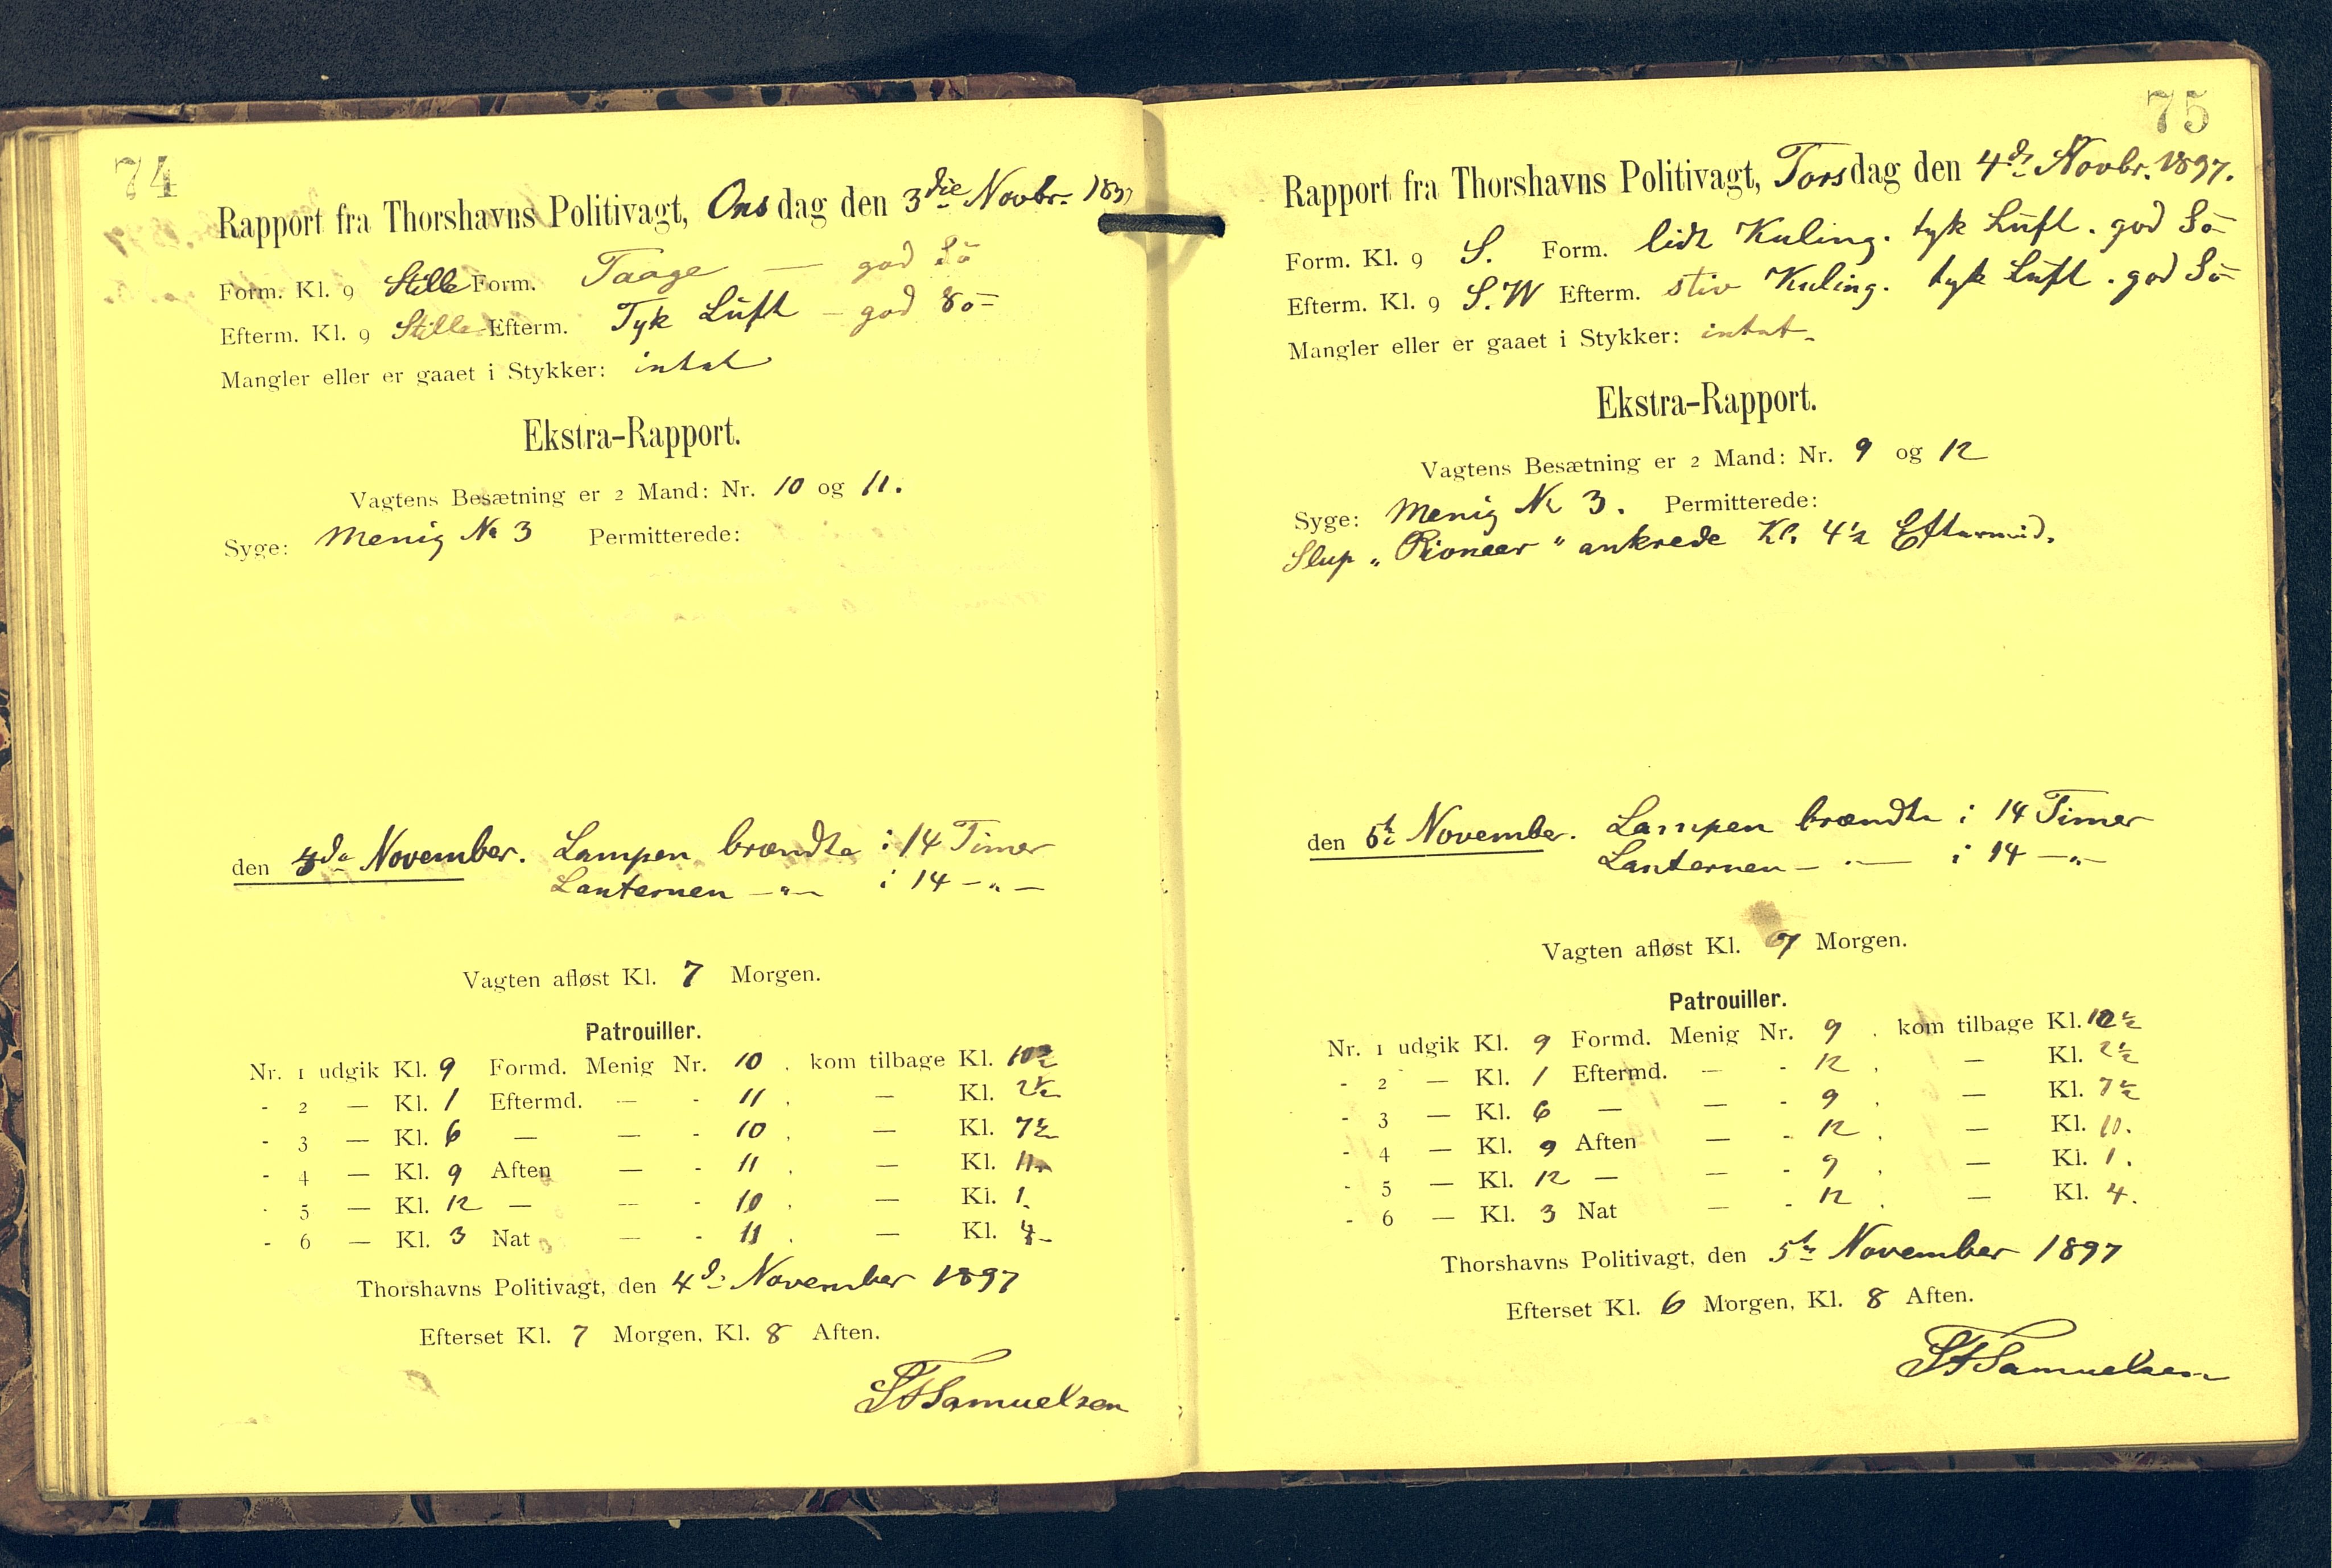 74
Rapport fra Thorshavns Politivagt, Onsdag den 3die Novbr. 1897
Form. Kl. 9 Stille Form. Taage — god Sö
Efterm. Kl. 9 Stille Efterm. Tyk Luft — god Sö
Mangler eller er gaaet i Stykker: intet
Ekstra-Rapport.
Vagtens Besætning er 2 Mand: Nr. 10 og 11.
Syge: Menig No 3 Permitterede:
den 4de November. Lampen brændte i 14 Timer
Lanternen —"— i 14 —"—
Vagten afløst Kl. 7 Morgen.
Patrouiller.
Nr. 1 udgik Kl. 9 Formd. Menig Nr. 10 . kom tilbage Kl. 10½
- 2 — Kl. 1 Eftermd. — - 11 . — Kl. 2½
- 3 — Kl. 6 — — - 10 . — Kl. 7½
- 4 — Kl. 9 Aften — - 11 . — Kl. 11
- 5 — Kl. 12 — — - 10 . — Kl. 1.
- 6 — Kl. 3 Nat — - 11 . — Kl. 4
Thorshavns Politivagt, den 4de November 1897
Efterset Kl. 7 Morgen, Kl. 8 Aften.
Samuelsen
75
Rapport fra Thorshavns Politivagt, Torsdag den 4de Novbr. 1897.
Form. Kl. 9 S. Form. lidt Kuling. tyk Luft. god Sö
Efterm. Kl. 9 S.W Efterm. stiv Kuling. tyk Luft. god Sö
Mangler eller er gaaet i Stykker: intet
Ekstra-Rapport.
Vagtens Besætning er 2 Mand: Nr. 9 og 12
Syge: Menig No 3. Permitterede:
Slup „Pioneer" ankrede Kl. 4½ Eftermid.
den 5te November. Lampen brændte i 14 Timer
Lanternen —"— i 14 —"—
Vagten afløst Kl. 7 Morgen.
Patrouiller.
Nr. 1 udgik Kl. 9 Formd. Menig Nr. 9 . kom tilbage Kl. 10½
- 2 — Kl. 1 Eftermd. — - 12 . — Kl. 2½
- 3 — Kl. 6 — — - 9 . — Kl. 7½
- 4 — Kl. 9 Aften — - 12 . — Kl. 10.
- 5 — Kl. 12 — — - 9 . — Kl. 1.
- 6 — Kl. 3 Nat — - 12 . — Kl. 4.
Thorshavns Politivagt, den 5te November 1897
Efterset Kl. 6 Morgen, Kl. 8 Aften.
Samuelsen